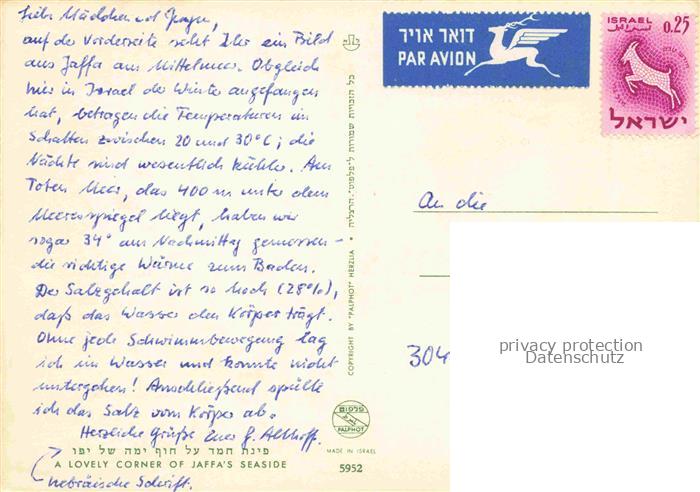 Liebe Mädchen und Jungen,
auf der Vorderseite seht Ihr ein Bild
aus Jaffa am Mittelmeer. Obgleich
hier in Israel der Winter angefangen
hat, betragen die Temperaturen im
Schatten zwischen 20 und 30°C; die
Nächte sind wesentlich kühler. Am
Toten Meer, das 400 m unter dem
Meeresspiegel liegt, haben wir
sogar 34° am Nachmittag gemessen –
die richtige Wärme zum Baden.
Der Salzgehalt ist so hoch (28%),
daß das Wasser den Körper trägt.
Ohne jede Schwimmbewegung lag
ich im Wasser und konnte nicht
untergehen! Anschließend spülte
ich das Salz vom Körper ab.
Herzliche Grüße Euer G. Althoff.
פינת חמד על חוף ימה של יפו
A LOVELY CORNER OF JAFFA'S SEASIDE
hebräische Schrift.
כל הזכויות שמורות ל"פלפוט", הרצליה •
COPYRIGHT BY "PALPHOT" HERZLIA
פלפוט
PALPHOT
MADE IN ISRAEL
5952
דואר אויר
PAR AVION
ISRAEL
اسرائيل
0.25
ישראל
An die
304
privacy protection
Datenschutz